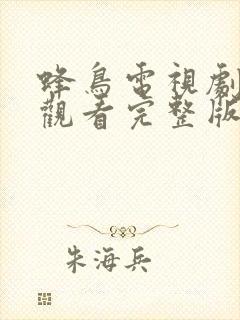 蜂鳥電視劇
觀看完整版
朱海兵